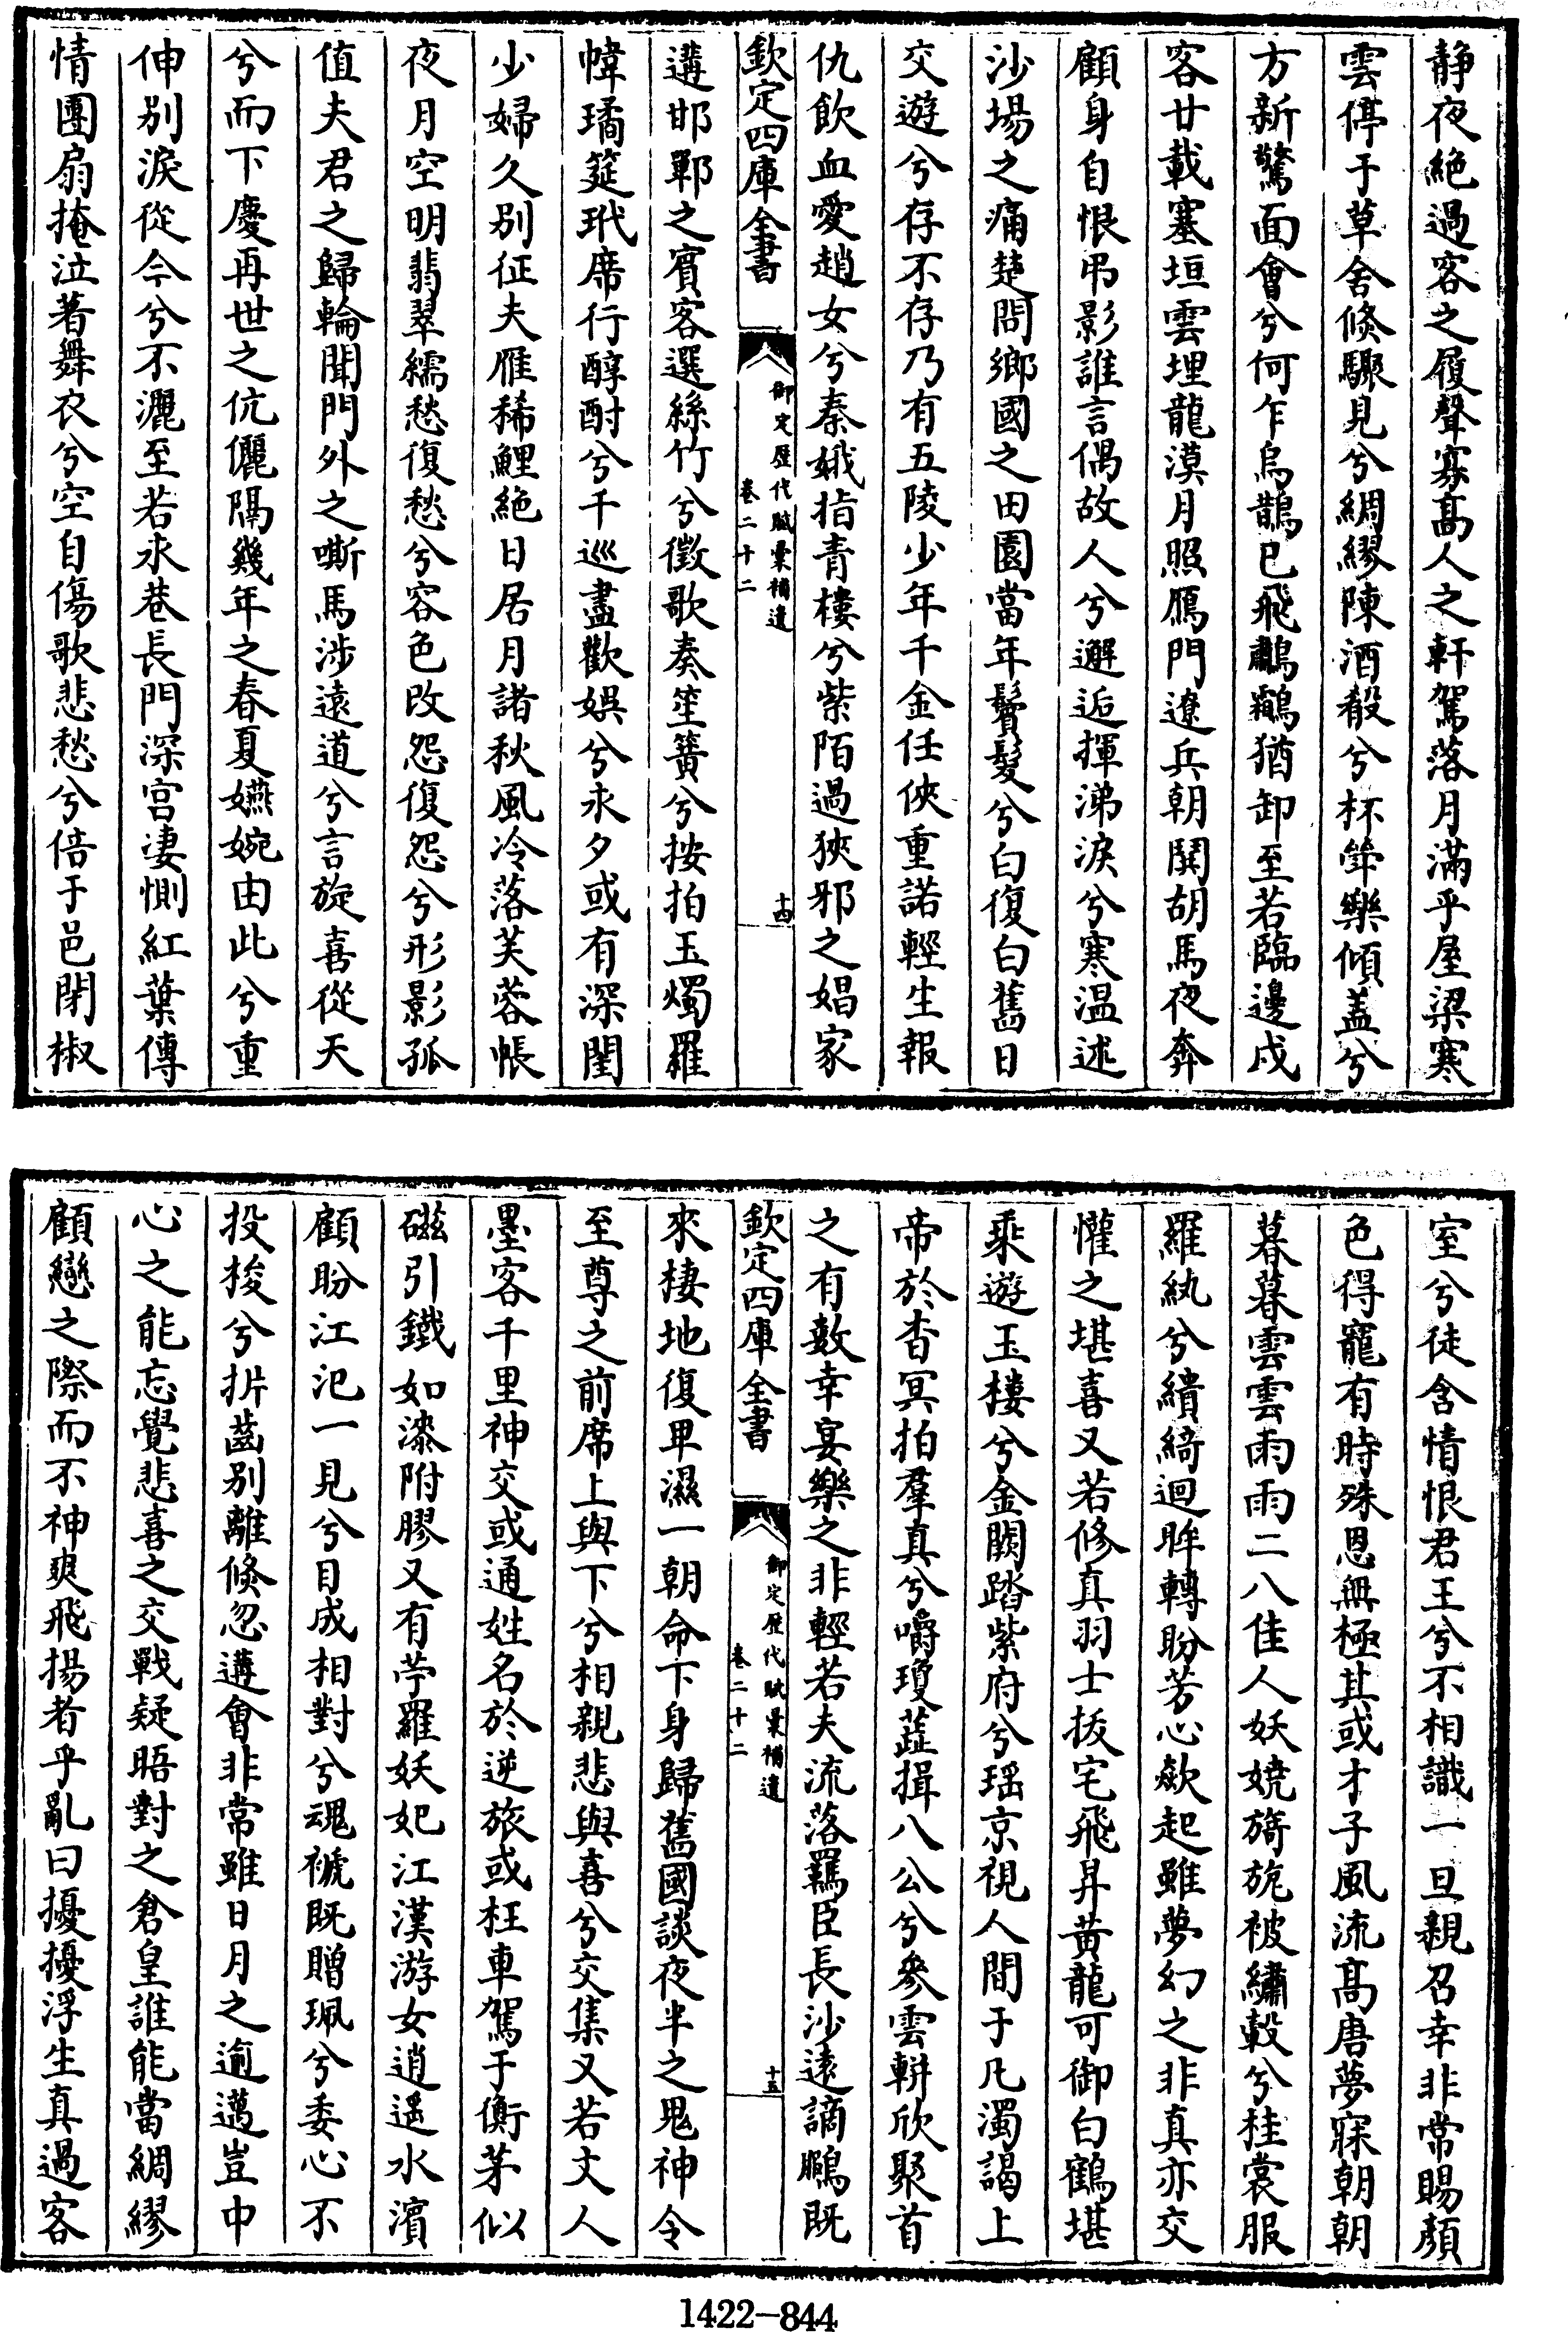 静夜絶過客之履聲寡髙人之軒駕落月滿乎屋梁寒
雲停于草舍倐驟見兮綢繆陳酒殽兮杯斝樂傾盖兮
方新驚面會兮何乍烏鵲已飛鷫鸘猶卸至若臨邊戍
客廿載塞垣雲埋龍漠月照鴈門遼兵朝鬬胡馬夜奔
顧身自恨弔影誰言偶故人兮邂逅揮涕淚兮寒温述
沙場之痛楚問鄉國之田園當年鬢髮兮白復白舊日
交遊兮存不存乃有五陵少年千金任俠重諾輕生報
仇飲血愛趙女兮秦娥指青樓兮紫陌過狹邪之娼家
欽定四庫全書
御定歴代賦彙補遺
卷二十二
十四
遘邯鄲之賔客選絲竹兮徵歌奏笙簧兮按拍玉燭羅
幃璚筵玳席行醇酎兮千巡盡歡娯兮永夕或有深閨
少婦久别征夫雁稀鯉絶日居月諸秋風冷落芙蓉帳
夜月空明翡翠繻愁復愁兮容色改怨復怨兮形影孤
值夫君之歸輪聞門外之嘶馬涉遠道兮言旋喜從天
兮而下慶再世之伉儷隔幾年之春夏嬿婉由此兮重
伸别淚從今兮不灑至若永巷長門深宫凄惻紅葉傳
情團扇掩泣著舞衣兮空自傷歌悲愁兮倍于邑閉椒
室兮徒含情恨君王兮不相識一旦親召幸非常賜顔
色得寵有時殊恩無極其或才子風流髙唐夢寐朝朝
暮暮雲雲雨雨二八佳人妖嬈旖旎被繡縠兮桂裳服
羅紈兮繢綺迴眸轉盼芳心歘起雖夢幻之非真亦交
懽之堪喜又若修真羽士抜宅飛昇黄龍可御白鶴堪
乘遊玉樓兮金闕踏紫府兮瑶京視人間于凡濁謁上
帝於杳冥拍羣真兮嚼瓊蘁揖八公兮參雲軿欣聚首
之有數幸宴樂之非輕若夫流落羈臣長沙遠謫鵩既
欽定四庫全書
御定歴代賦彙補遺
卷二十二
十五
來棲地復卑濕一朝命下身歸舊國談夜半之鬼神令
至尊之前席上與下兮相親悲與喜兮交集又若文人
墨客千里神交或通姓名於逆旅或枉車駕于衡茅似
磁引鐵如漆附膠又有苧羅妖妃江漢游女逍遥水濱
顧盼江汜一見兮目成相對兮魂褫既贈珮兮委心不
投梭兮折齒别離倐忽遘會非常雖日月之逾邁豈中
心之能忘覺悲喜之交戰疑晤對之倉皇誰能當綢繆
顧戀之際而不神爽飛揚者乎亂曰擾擾浮生真過客
1422-844